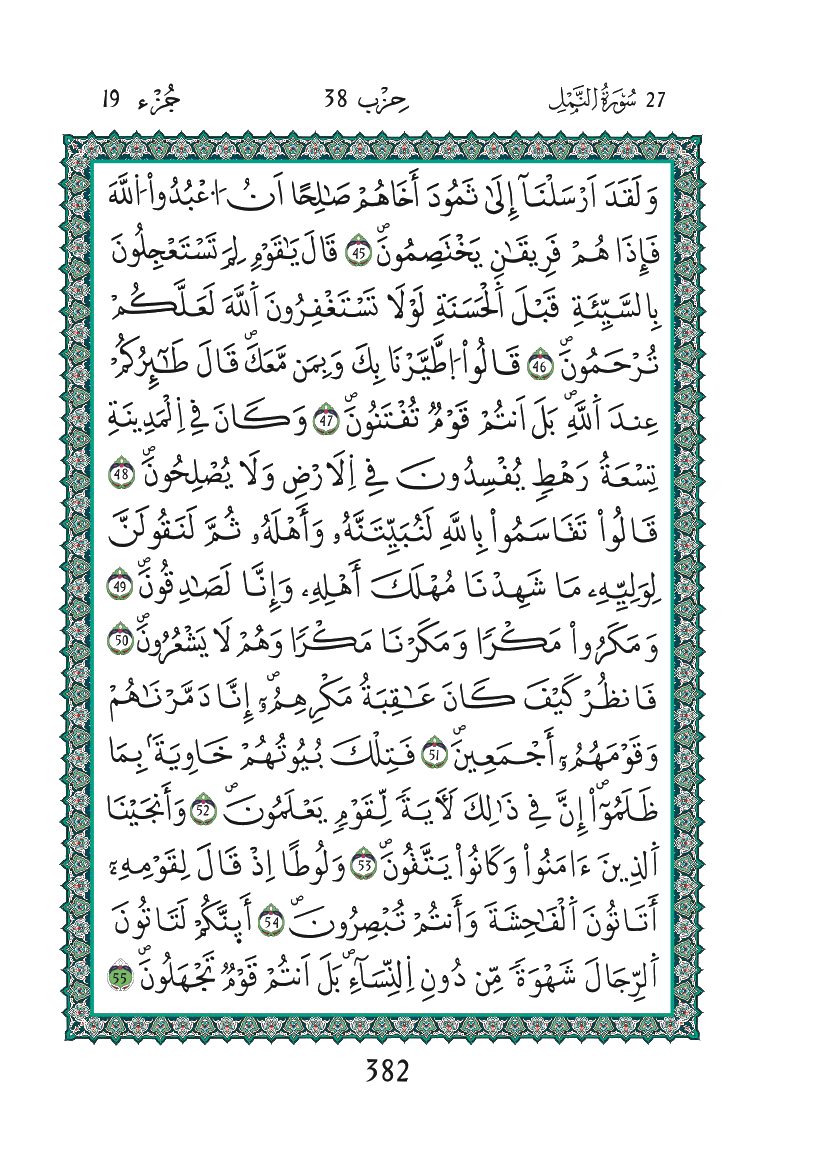 27 سُورَةُ النَّمْلِ حِزْب 38 جُزْء 19
وَلَقَدَ اَرْسَلْنَآ إِلَىٰ ثَمُودَ أَخَاهُمْ صَٰلِحًا اَنُ اُ۟عْبُدُوا۟ اُ۬للَّهَ
فَإِذَا هُمْ فَرِيقَٰنِ يَخْتَصِمُونَۖ 45 قَالَ يَٰقَوْمِ لِمَ تَسْتَعْجِلُونَ
بِالسَّيِّئَةِ قَبْلَ اَ۬لْحَسَنَةِ لَوْلَا تَسْتَغْفِرُونَ اَ۬للَّهَ لَعَلَّكُمْ
تُرْحَمُونَۖ 46 قَالُوا۟ اُ۪طَّيَّرْنَا بِكَ وَبِمَن مَّعَكَۖ قَالَ طَٰٓئِرُكُمْ
عِندَ اَ۬للَّهِۖ بَلَ اَنتُمْ قَوْمٞ تُفْتَنُونَۖ 47 وَكَانَ فِي اِ۬لْمَدِينَةِ
تِسْعَةُ رَهْطٖ يُفْسِدُونَ فِي اِ۬لَارْضِ وَلَا يُصْلِحُونَۖ 48
قَالُوا۟ تَقَاسَمُوا۟ بِاللَّهِ لَنُبَيِّتَنَّهُۥ وَأَهْلَهُۥ ثُمَّ لَنَقُولَنَّ
لِوَلِيِّهِۦ مَا شَهِدْنَا مُهْلَكَ أَهْلِهِۦ وَإِنَّا لَصَٰدِقُونَۖ 49
وَمَكَرُوا۟ مَكْرًا وَمَكَرْنَا مَكْرًا وَهُمْ لَا يَشْعُرُونَۖ 50
فَانظُرْ كَيْفَ كَانَ عَٰقِبَةُ مَكْرِهِمُۥٓۖ إِنَّا دَمَّرْنَٰهُمْ
وَقَوْمَهُمُۥٓ أَجْمَعِينَۖ 51 فَتِلْكَ بُيُوتُهُمْ خَاوِيَةَۢ بِمَا
ظَلَمُوٓا۟ۖ إِنَّ فِي ذَٰلِكَ لَأٓيَةٗ لِّقَوْمٖ يَعْلَمُونَۖ 52 وَأَنجَيْنَا
اَ۬لذِينَ ءَامَنُوا۟ وَكَانُوا۟ يَتَّقُونَۖ 53 وَلُوطًا إِذْ قَالَ لِقَوْمِهِۦٓ
أَتَاتُونَ اَ۬لْفَٰحِشَةَ وَأَنتُمْ تُبْصِرُونَۖ 54 أَئِنَّكُمْ لَتَاتُونَ
اَ۬لرِّجَالَ شَهْوَةٗ مِّن دُونِ اِ۬لنِّسَآءِۖ بَلَ اَنتُمْ قَوْمٞ تَجْهَلُونَۖ 55
382